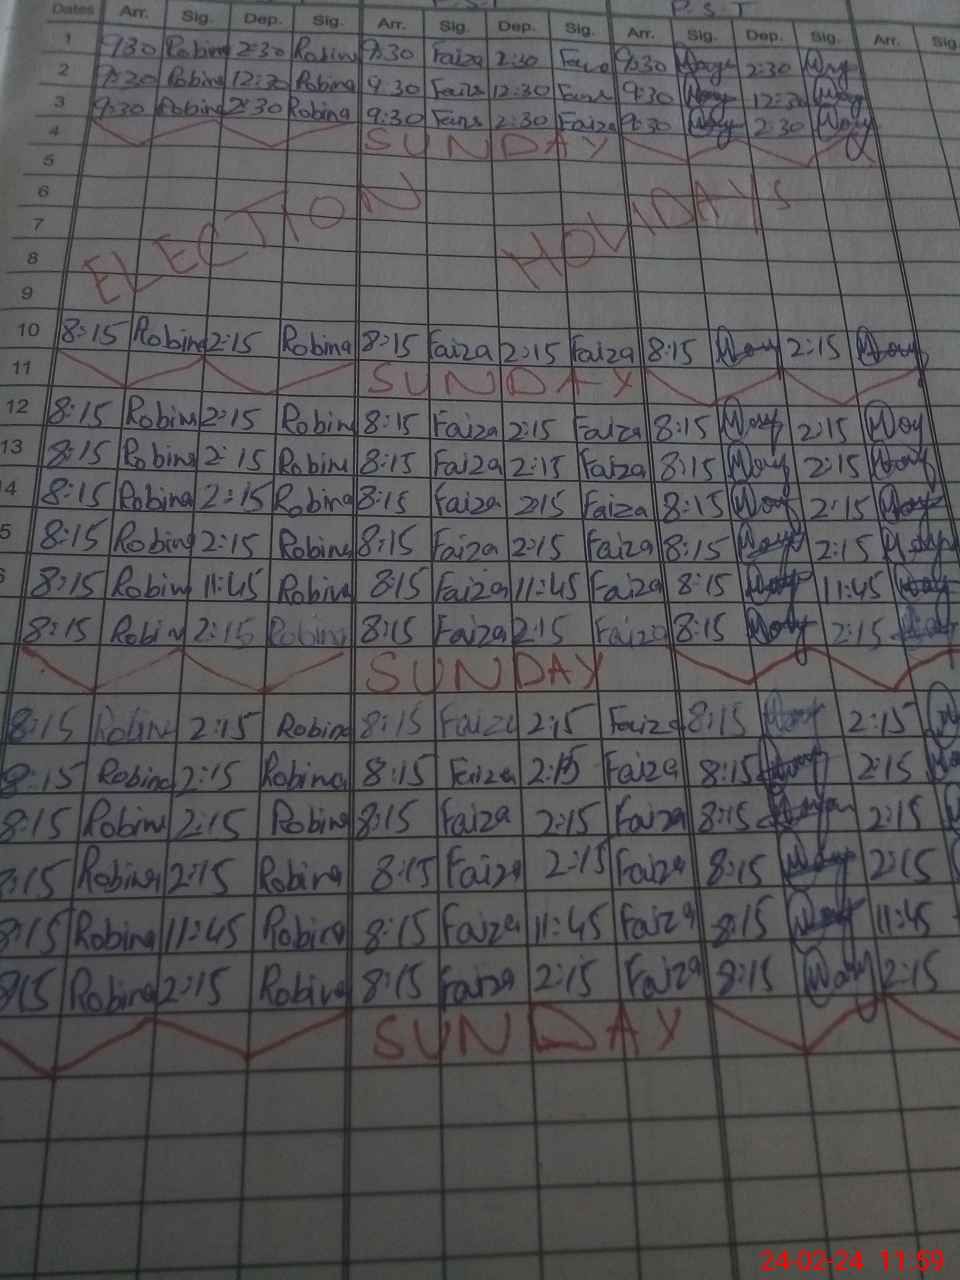 P.S.T
Dates Arr. Sig. Dep. Sig. Arr. Sig. Dep. Sig. Arr. Sig. Dep. Sig. Arr. Sig.
1 9:30 Robina 2:30 Robina 9:30 Faiza 2:30 9:30 2:30
2 9:30 Robina 12:30 Robina 9:30 Faiza 12:30 9:30 12:30
3 9:30 Robina 2:30 Robina 9:30 2:30 Faiza 9:30 2:30
4 SUNDAY
5
6
7 ELECTION HOLIDAYS
8
9
10 8:15 Robina 2:15 Robina 8:15 Faiza 2:15 Faiza 8:15 2:15
11 SUNDAY
12 8:15 Robina 2:15 Robina 8:15 Faiza 2:15 Faiza 8:15 2:15
13 8:15 Robina 2:15 Robina 8:15 Faiza 2:15 Faiza 8:15 2:15
4 8:15 Robina 2:15 Robina 8:15 Faiza 2:15 Faiza 8:15 2:15
5 8:15 Robina 2:15 Robina 8:15 Faiza 2:15 Faiza 8:15 2:15
8:15 Robina 11:45 Robina 8:15 Faiza 11:45 Faiza 8:15 11:45
8:15 Robin 2:15 Robina 8:15 Faiza 2:15 Faiza 8:15 2:15
SUNDAY
8:15 Robina 2:15 Robina 8:15 Faiza 2:15 Faiza 8:15 2:15
8:15 Robina 2:15 Robina 8:15 Faiza 2:15 Faiza 8:15 2:15
8:15 Robina 2:15 Robina 8:15 Faiza 2:15 Faiza 8:15 2:15
8:15 Robina 2:15 Robina 8:15 Faiza 2:15 Faiza 8:15 2:15
8:15 Robina 11:45 Robina 8:15 Faiza 11:45 Faiza 8:15 11:45
8:15 Robina 2:15 Robina 8:15 Faiza 2:15 Faiza 8:15 2:15
SUNDAY
24-02-24 11:59